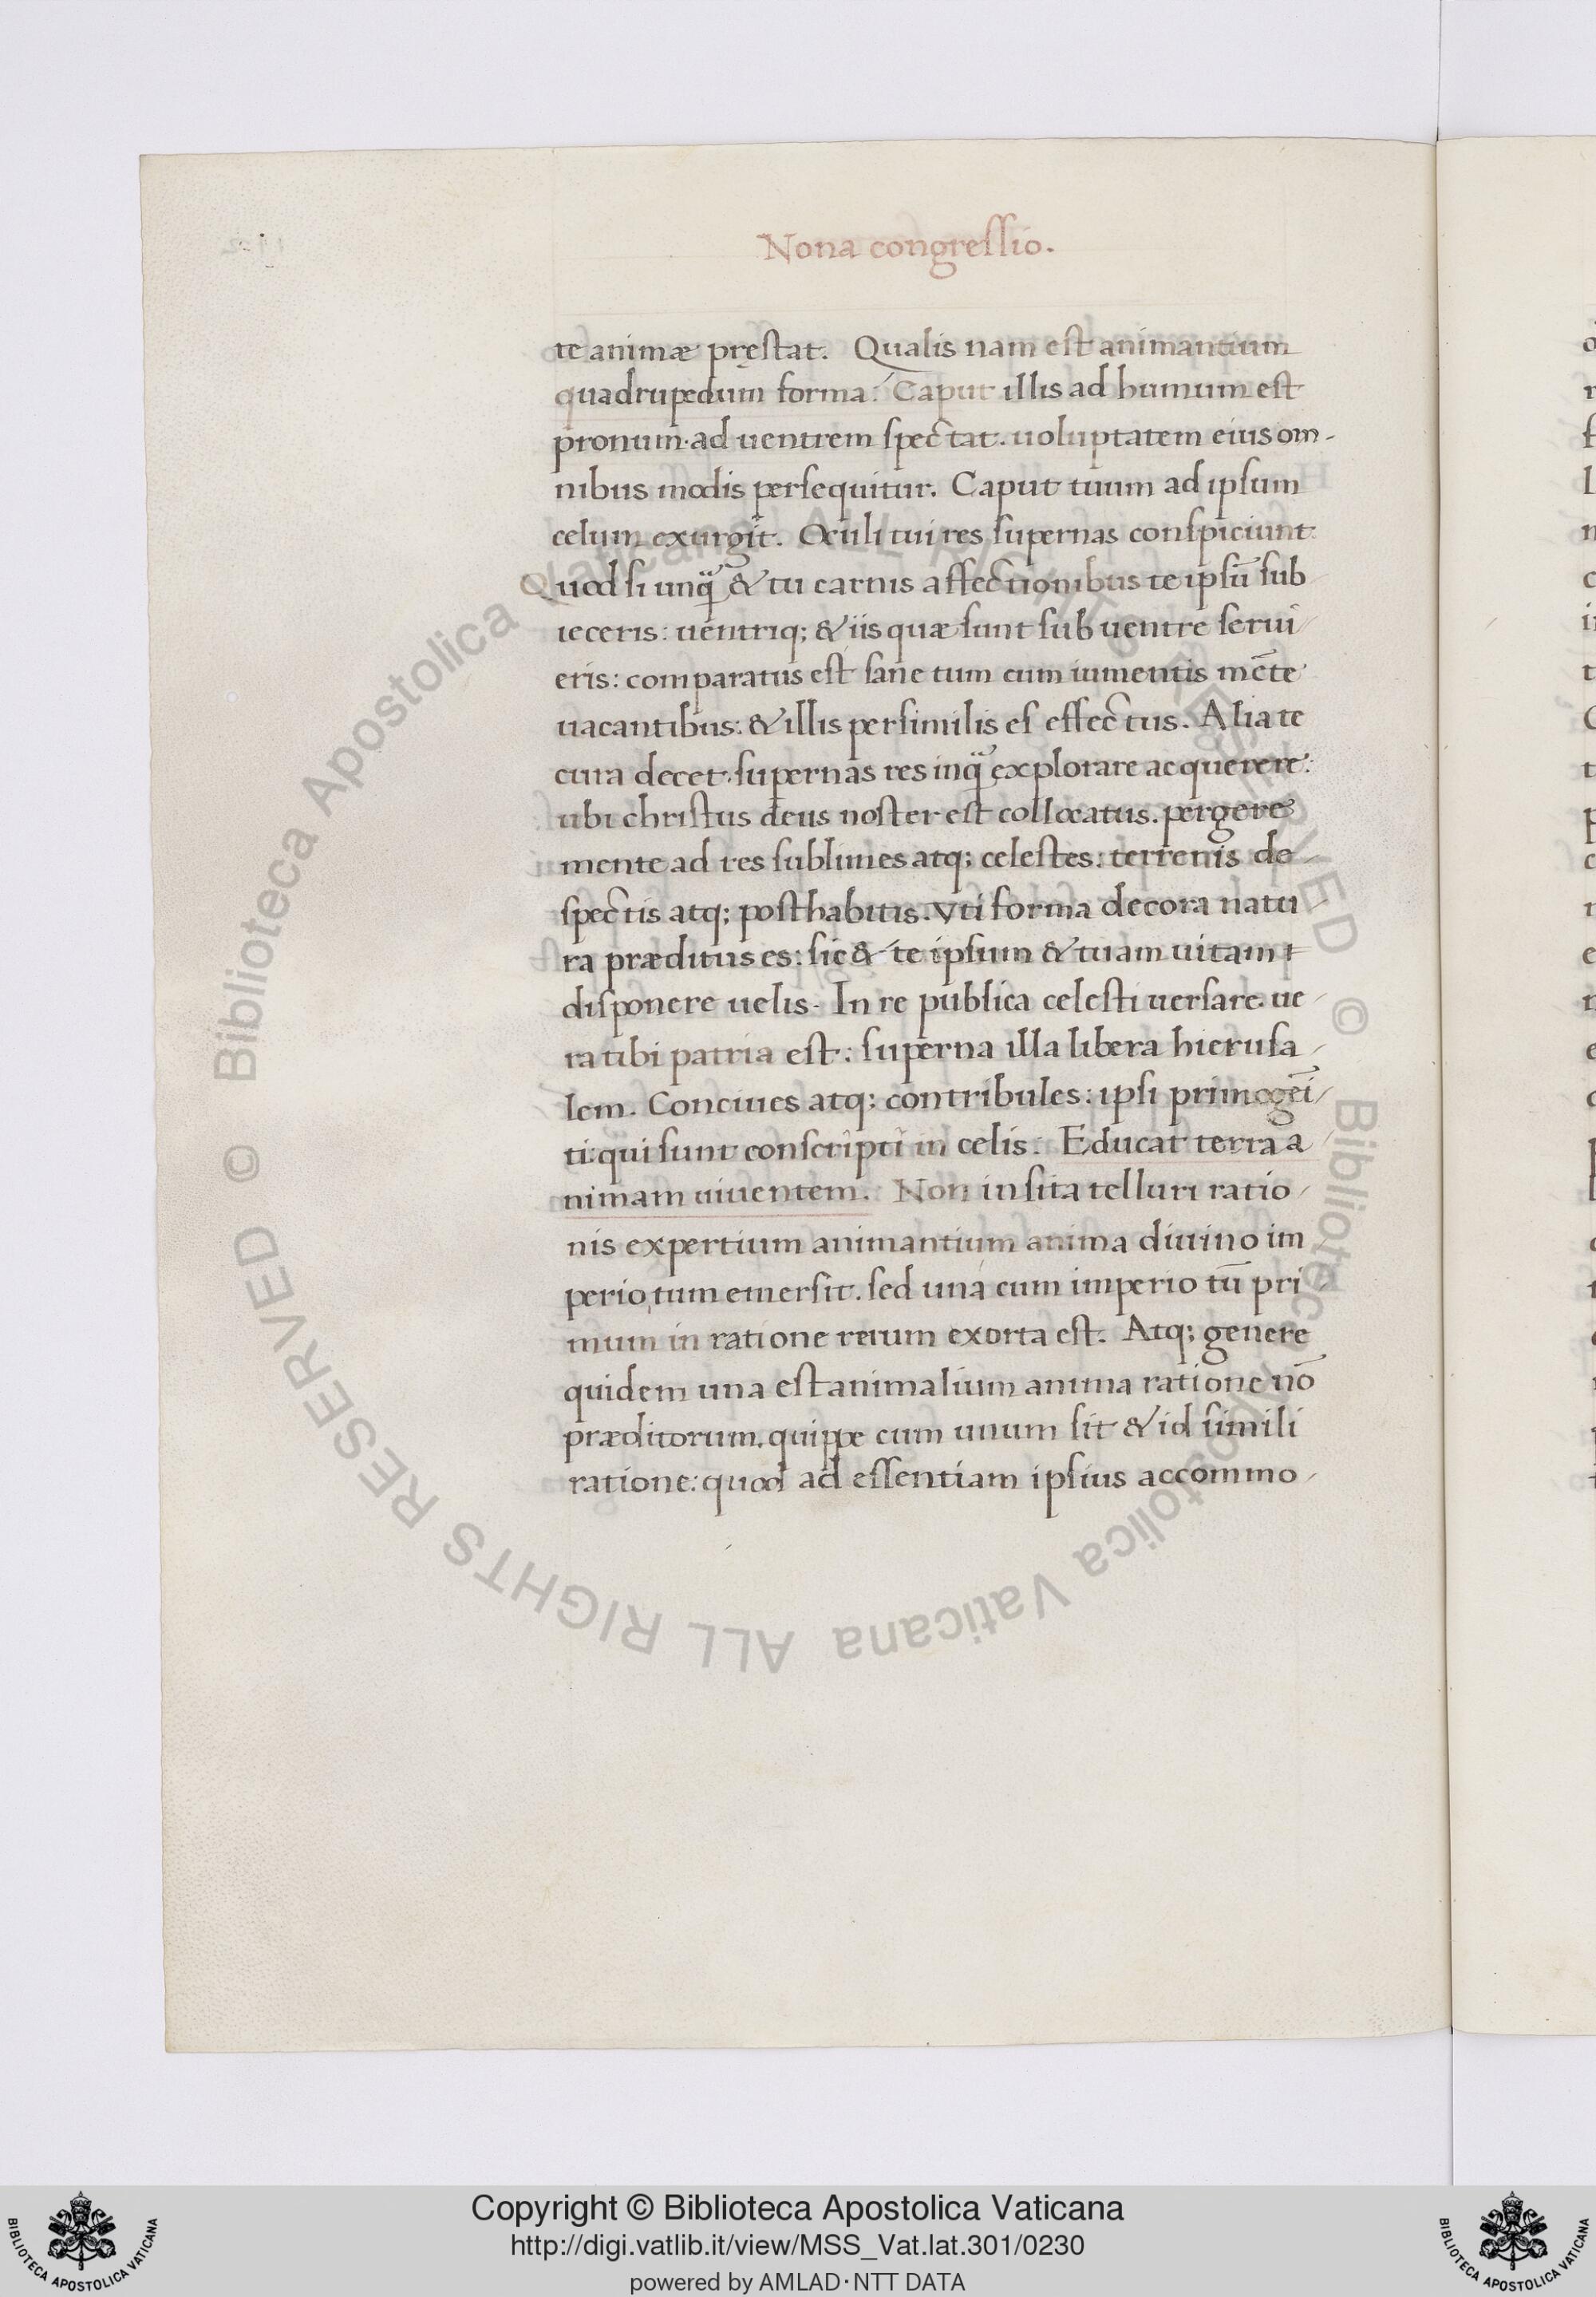 Nona congreſſio.
te animæ pręſtat. Qualis nam eſt animantium
quadrupedum forma: Caput illis ad humum eſt
pronum. ad uentrem ſpectat. uoluptatem eius om-
nibus modis perſequitur. Caput tuum ad ipſum
celum exurgit. Oculi tui res ſupernas conſpiciunt:
Quod ſi unq̃ & tu carnis affectionibus te ipſū ſub
ieceris: uentriq; & iis quæ ſunt ſub uentre ſerui/
eris: comparatus eſt ſane tum cum iumentis mēte
uacantibus: & illis perſimilis eſ effectus. Alia te
cura decet. ſupernas res inq̃ explorare ac querere:
ubi chriſtus deus noſter eſt collocatus. pergere
mente ad res ſublimes atq; celeſtes: terrenis de/
ſpectis atq; poſthabitis. Vti forma decora natu
ra præditus es: ſic & te ipſum & tuam uitam
diſponere uelis. In re publica celeſti uerſare. ue/
ra tibi patria eſt: ſuperna illa libera hieruſa/
lem. Conciues atq; contribules: ipſi primogēi/
ti: qui ſunt conſcripti in celis. Educat terra a/
nimam uiuentem. Non inſita telluri ratio/
nis expertium animantium anima diuino im
perio, tum emerſit. ſed una cum imperio tū pri/
mum in ratione rerum exorta eſt. Atq; genere
quidem una eſt animalium anima ratione nō
præditorum. quippe cum unum ſit & id ſimili
ratione: quod ad eſſentiam ipſius accommo/
© Biblioteca Apostolica Vaticana ALL RIGHTS RESERVED © Biblioteca Apostolica Vaticana ALL RIGHTS RESERVED
Copyright © Biblioteca Apostolica Vaticana
http://digi.vatlib.it/view/MSS_Vat.lat.301/0230
powered by AMLAD·NTT DATA
BIBLIOTECA APOSTOLICA VATICANA
BIBLIOTECA APOSTOLICA VATICANA